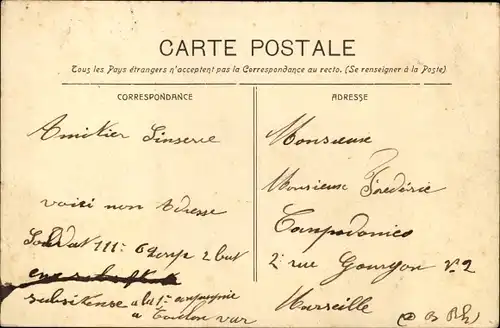 CARTE POSTALE
Tous les Pays étrangers n'acceptent pas la Correspondance au recto. (Se renseigner à la Poste)
CORRESPONDANCE
Amitier Sinserre
voici non Adresse
Soldat 111e 6 2 bat
subsitense a la 1e compagnie
a Toulon var
ADRESSE
Monsieur
Monsieur Férdérie
Campodonico
2 rue Gourgon No 2
Marseille